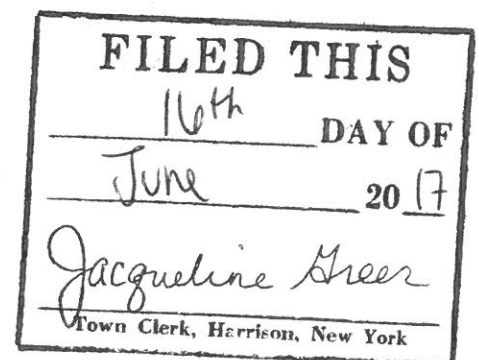 FILED THIS
16th DAY OF
June 2017
Jacqueline Greer
Town Clerk, Harrison, New York